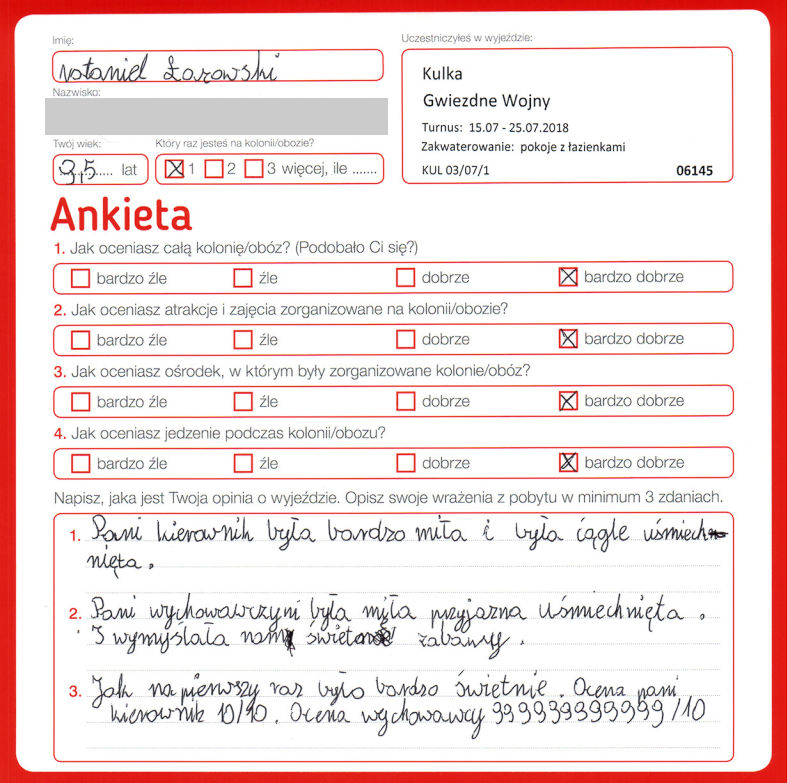 Imię:
Nataniel Łazowski
Nazwisko:
Uczestniczyłeś w wyjeździe:
Kulka
Gwiezdne Wojny
Turnus: 15.07 - 25.07.2018
Zakwaterowanie: pokoje z łazienkami
KUL 03/07/1 06145
Twój wiek: Który raz jesteś na kolonii/obozie?
9,5..... lat 1 2 3 więcej, ile .......
Ankieta
1. Jak oceniasz całą kolonię/obóz? (Podobało Ci się?)
bardzo źle źle dobrze bardzo dobrze
2. Jak oceniasz atrakcje i zajęcia zorganizowane na kolonii/obozie?
bardzo źle źle dobrze bardzo dobrze
3. Jak oceniasz ośrodek, w którym były zorganizowane kolonie/obóz?
bardzo źle źle dobrze bardzo dobrze
4. Jak oceniasz jedzenie podczas kolonii/obozu?
bardzo źle źle dobrze bardzo dobrze
Napisz, jaka jest Twoja opinia o wyjeździe. Opisz swoje wrażenia z pobytu w minimum 3 zdaniach.
1. Pani kierownik była bardzo miła i była ciągle uśmiech
nięta.
2. Pani wychowawczyni była miła przyjazna uśmiechnięta.
I wymyślała nam świetne zabawy.
3. Jak na pierwszy raz było bardzo świetnie. Ocena pani
kierownik 10/10. Ocena wychowawcy 999999999999/10